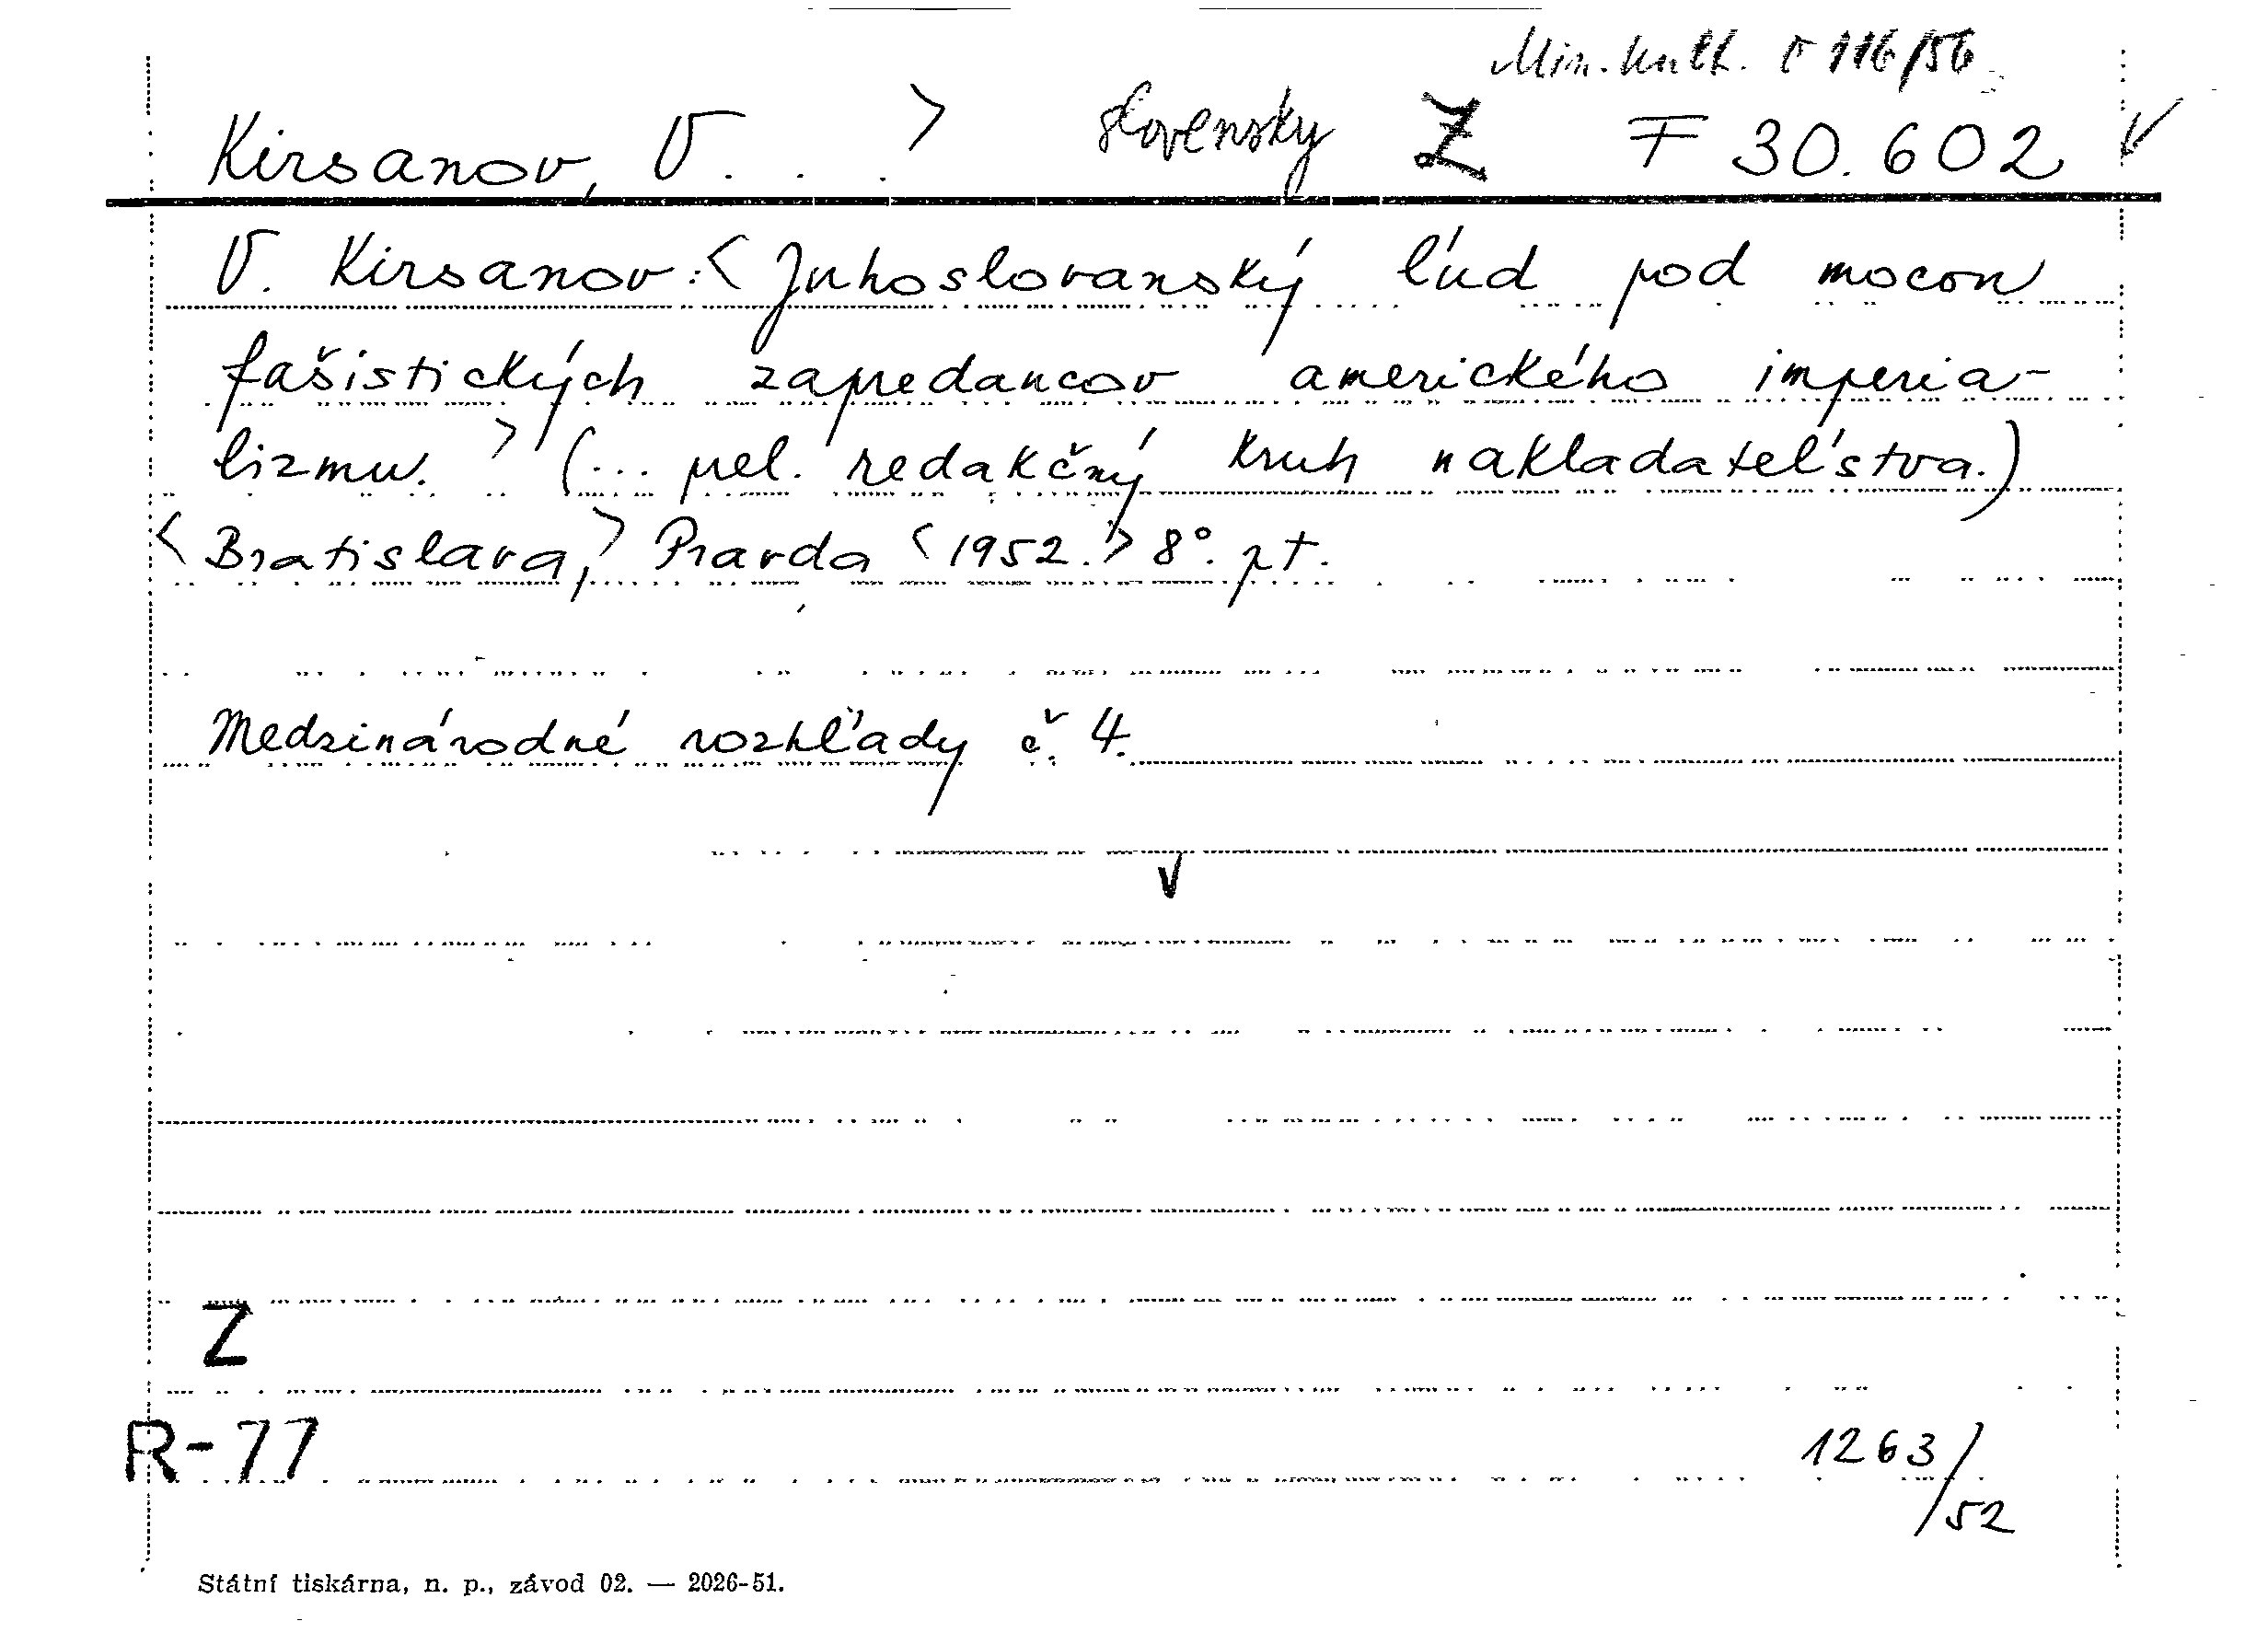 Min. kult. č 116/56
Kirsanov, V . . . > slovensky Z F 30.602 V
V. Kirsanov: < Juhoslovanský ľud pod mocou
fašistických zapredancov amerického imperia-
lizmu. > (... prel. redakčný kruh nakladateľstva.)
< Bratislava, > Pravda < 1952. > 8°. pt.
Medzinárodné rozhľady č. 4.
V
Z
R-77
1263/52
Státní tiskárna, n. p., závod 02. — 2026-51.